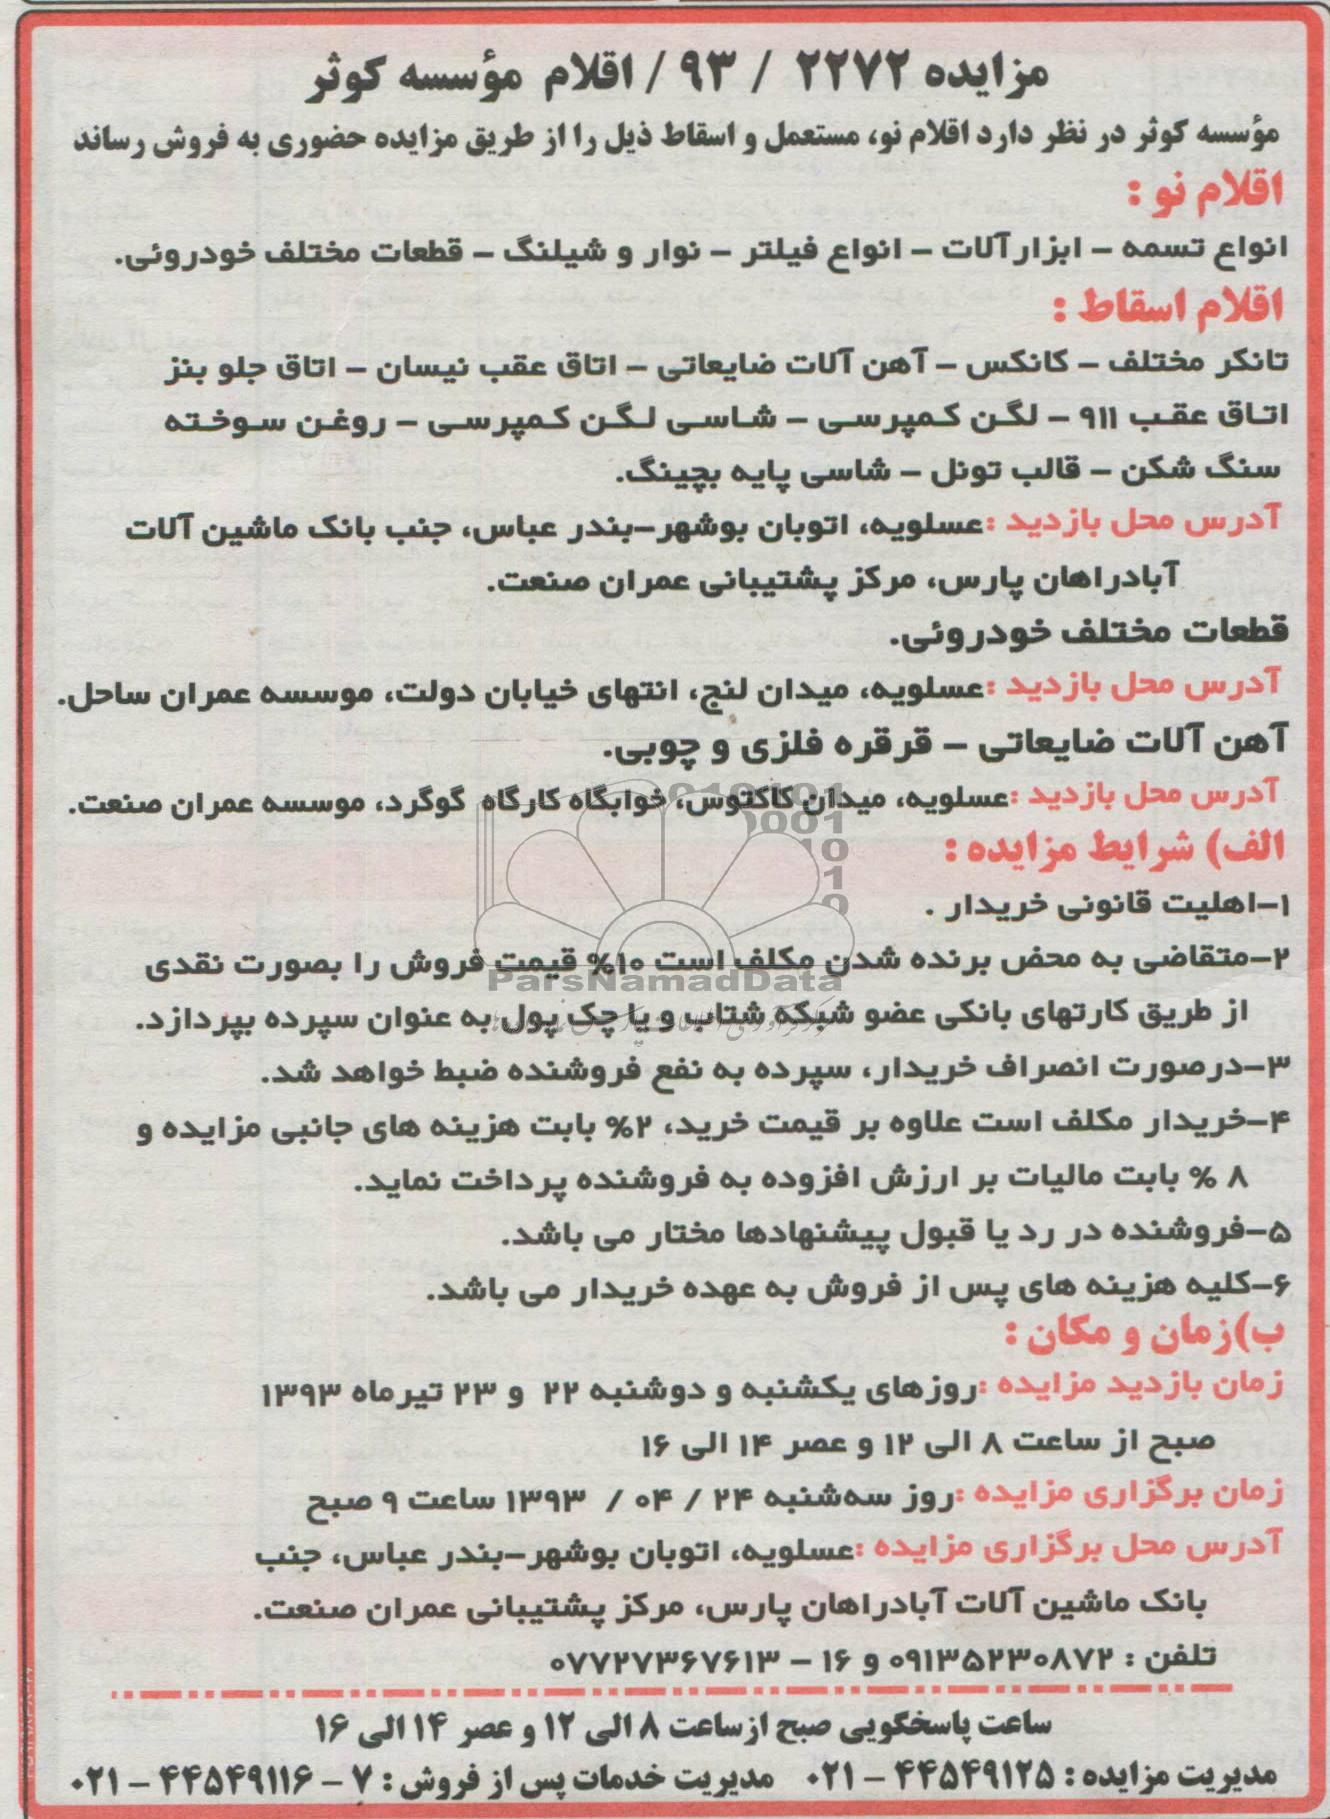 مزایده ۲۲۷۲ / ۹۳ / اقلام مؤسسه کوثر
مؤسسه کوثر در نظر دارد اقلام نو، مستعمل و اسقاط ذیل را از طریق مزایده حضوری به فروش رساند
اقلام نو :
انواع تسمه – ابزارآلات – انواع فیلتر – نوار و شیلنگ – قطعات مختلف خودروئی.
اقلام اسقاط :
تانکر مختلف – کانکس – آهن آلات ضایعاتی – اتاق عقب نیسان – اتاق جلو بنز
اتاق عقب ۹۱۱ – لگن کمپرسی – شاسی لگن کمپرسی – روغن سوخته
سنگ شکن – قالب تونل – شاسی پایه بچینگ.
آدرس محل بازدید :عسلویه، اتوبان بوشهر–بندر عباس، جنب بانک ماشین آلات
آبادراهان پارس، مرکز پشتیبانی عمران صنعت.
قطعات مختلف خودروئی.
آدرس محل بازدید :عسلویه، میدان لنج، انتهای خیابان دولت، موسسه عمران ساحل.
آهن آلات ضایعاتی – قرقره فلزی و چوبی.
آدرس محل بازدید :عسلویه، میدان کاکتوس، خوابگاه کارگاه گوگرد، موسسه عمران صنعت.
الف) شرایط مزایده :
۱–اهلیت قانونی خریدار .
۲–متقاضی به محض برنده شدن مکلف است ۱۰% قیمت فروش را بصورت نقدی
ParsNamadData
از طریق کارتهای بانکی عضو شبکه شتاب و یا چک پول به عنوان سپرده بپردازد.
۳–درصورت انصراف خریدار، سپرده به نفع فروشنده ضبط خواهد شد.
۴–خریدار مکلف است علاوه بر قیمت خرید، ۲% بابت هزینه های جانبی مزایده و
۸ % بابت مالیات بر ارزش افزوده به فروشنده پرداخت نماید.
۵–فروشنده در رد یا قبول پیشنهادها مختار می باشد.
۶–کلیه هزینه های پس از فروش به عهده خریدار می باشد.
ب)زمان و مکان :
زمان بازدید مزایده :روزهای یکشنبه و دوشنبه ۲۲ و ۲۳ تیرماه ۱۳۹۳
صبح از ساعت ۸ الی ۱۲ و عصر ۱۴ الی ۱۶
زمان برگزاری مزایده :روز سه‌شنبه ۲۴ / ۰۴ / ۱۳۹۳ ساعت ۹ صبح
آدرس محل برگزاری مزایده :عسلویه، اتوبان بوشهر–بندر عباس، جنب
بانک ماشین آلات آبادراهان پارس، مرکز پشتیبانی عمران صنعت.
تلفن : ۰۹۱۳۵۲۳۰۸۷۲ و ۱۶ – ۰۷۷۲۷۳۶۷۶۱۳
ساعت پاسخگویی صبح از ساعت ۸ الی ۱۲ و عصر ۱۴ الی ۱۶
مدیریت مزایده : ۴۴۵۴۹۱۲۵ – ۰۲۱ مدیریت خدمات پس از فروش : ۷ – ۴۴۵۴۹۱۱۶ – ۰۲۱